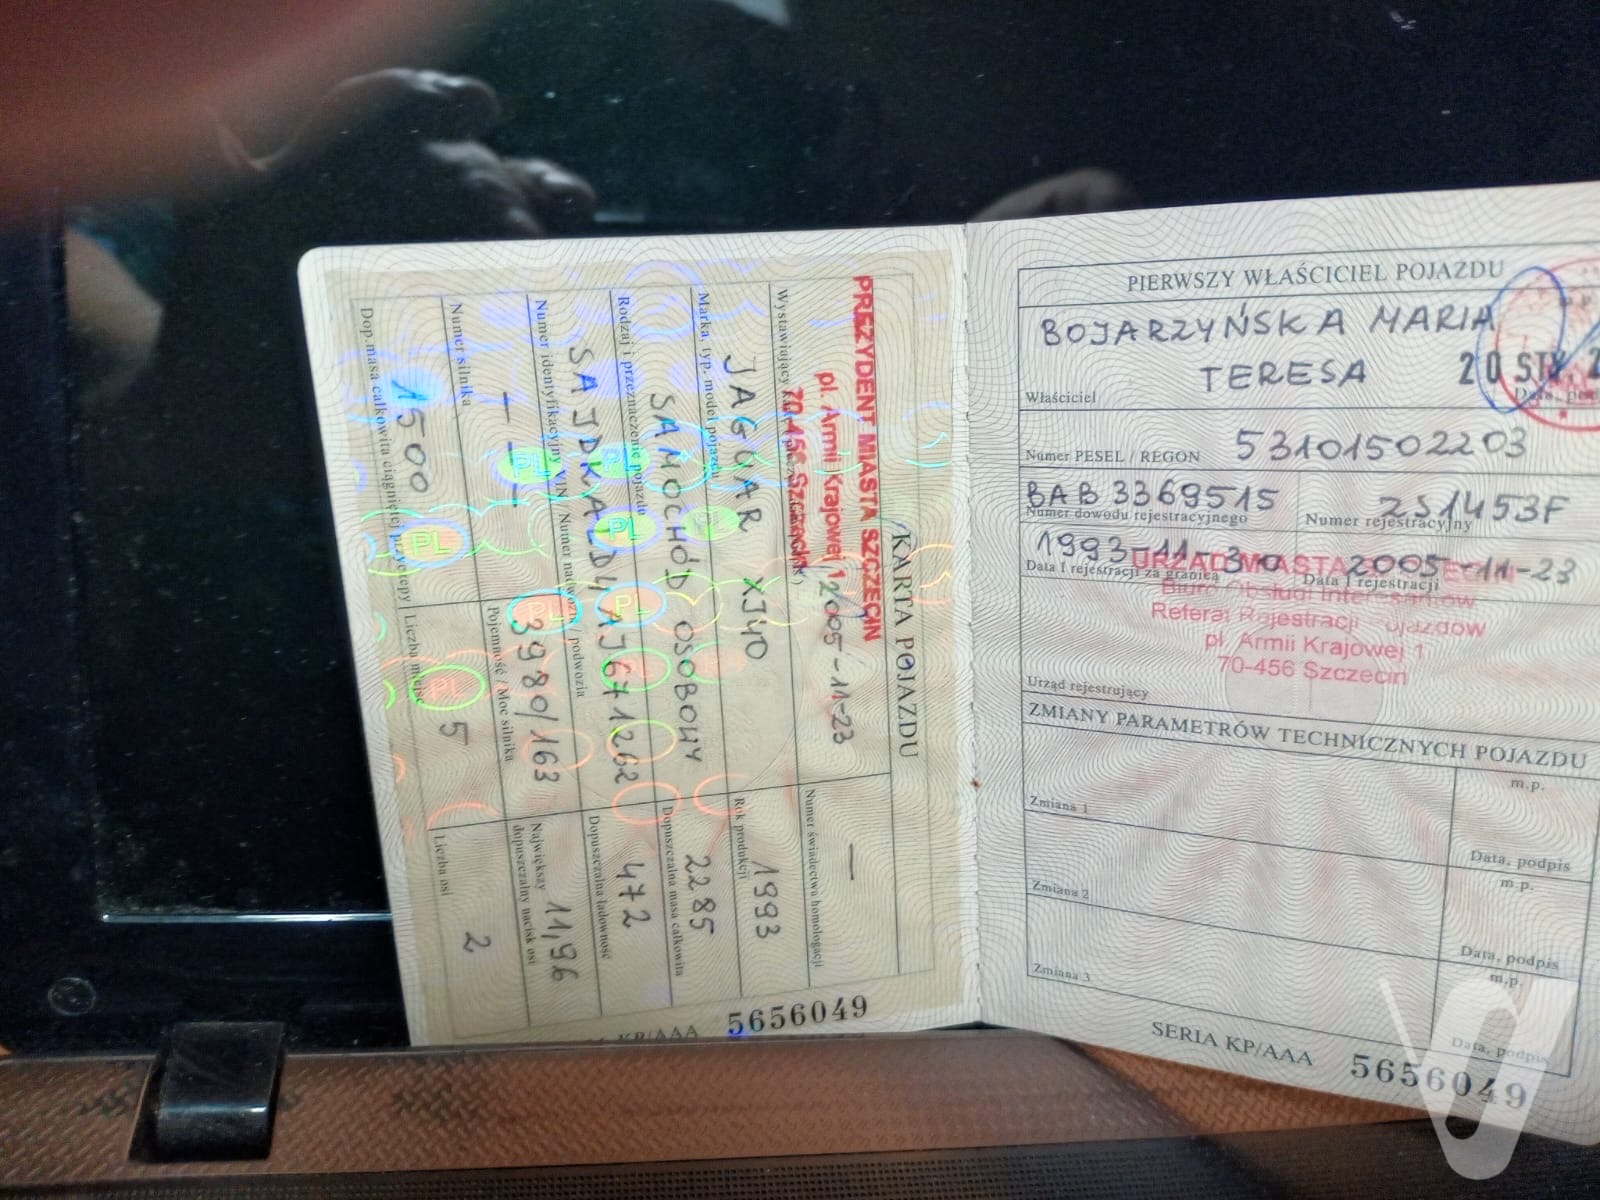 KARTA POJAZDU
PREZYDENT MIASTA SZCZECIN
pl. Armii Krajowej 1
70-456 Szczecin
2005-11-23
Numer świadectwa homologacji
—
JAGUAR XJ40
Marka, typ, model pojazdu
1993
Rok produkcji
SAMOCHÓD OSOBOWY
Rodzaj i przeznaczenie pojazdu
2285
Dopuszczalna masa całkowita
Numer identyfikacyjny VIN / Numer nadwozia / podwozia
472
Dopuszczalna ładowność
Numer silnika
3980/163
Pojemność / Moc silnika
11,96
Największy
dopuszczalny nacisk osi
1500
Dop. masa całkowita ciągniętej przyczepy
5
Liczba miejsc
2
Liczba osi
KP/AAA 5656049
PIERWSZY WŁAŚCICIEL POJAZDU
BOJARZYŃSKA MARIA
TERESA
20 STY
Właściciel
Numer PESEL / REGON 53101502203
BAB 3369515
Numer dowodu rejestracyjnego
ZS1453F
Numer rejestracyjny
1993-11-30
Data I rejestracji za granicą
2005-11-23
Data I rejestracji
URZĄD MIASTA
Biuro Obsługi Interesantów
Referat Rejestracji Pojazdów
pl. Armii Krajowej 1
70-456 Szczecin
Urząd rejestrujący
ZMIANY PARAMETRÓW TECHNICZNYCH POJAZDU
m.p.
Zmiana 1
Data, podpis
m.p.
Zmiana 2
Data, podpis
m.p.
Zmiana 3
Data, podpis
SERIA KP/AAA 5656049